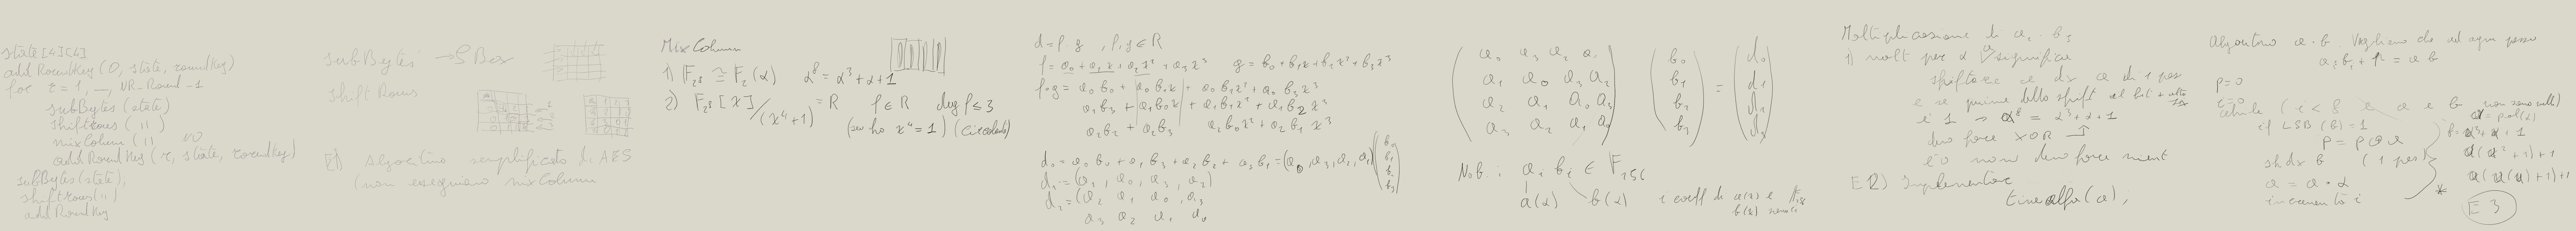 state[4][4]
add RoundKey (0, state, roundkey)
for r = 1, __, NR-Round-1
subBytes (state)
shiftrows (")
mixColumn (") NO
add RoundKey (r, state, roundkey)
subBytes (state),
shiftrows (")
add RoundKey
subBytes → S Box
Shift Rows
E1) Algoritmo semplificato di AES
(non eseguiamo mixColumn
Mix Column
1) F₂⁸ ≅ F₂(α) α⁸ = α³ + α + 1
2) F₂⁸[x]/(x⁴+1) = R f ∈ R deg f ≤ 3
(se ho x⁴ = 1) (circolanti)
d = f · g , f, g ∈ R
f = a₀ + a₁x + a₂x² + a₃x³ g = b₀ + b₁x + b₂x² + b₃x³
f·g = a₀b₀ + a₀b₁x + a₀b₂x² + a₀b₃x³
a₁b₃ + a₁b₀x + a₁b₁x² + a₁b₂x³
a₂b₂ + a₂b₃ a₂b₀x² + a₂b₁x³
d₀ = a₀b₀ + a₁b₃ + a₂b₂ + a₃b₁ = (a₀, a₃, a₂, a₁) (b₀ b₁ b₂ b₃)
d₁ = (a₁, a₀, a₃, a₂)
d₂ = (a₂ a₁ a₀, a₃
a₃ a₂ a₁ a₀
(a₀ a₃ a₂ a₁) (b₀) (d₀)
(a₁ a₀ a₃ a₂) (b₁) = (d₁)
(a₂ a₁ a₀ a₃) (b₂) (d₂)
(a₃ a₂ a₁ a₀) (b₃) (d₃)
N.b.: aᵢ bᵢ ∈ F₂₅₆
a(α) b(α) i coeff di a(α) e
b(α) sono
Moltiplicazione di aᵢ · bⱼ
1) molt per α significa
shiftare a dx a di 1 pos
e se prima dello shift il bit + alto
è 1 → α⁸ = α³+α+1
devo fare XOR
è 0 non devo fare nient
E2) Implementare
timealfa(a);
Algoritmo a · b Vogliamo che ad ogni passo
aᵢbᵢ + P = a b
p=0
i=0
while (i < 8 a e b non sono nulli)
if LSB (b) = 1
p = p ⊕ a
sh dx b (1 pos)
a = a · α
incremento i
*
α = pol(α)
α(α²+1)+1
α(α(α)+1)+1
E 3